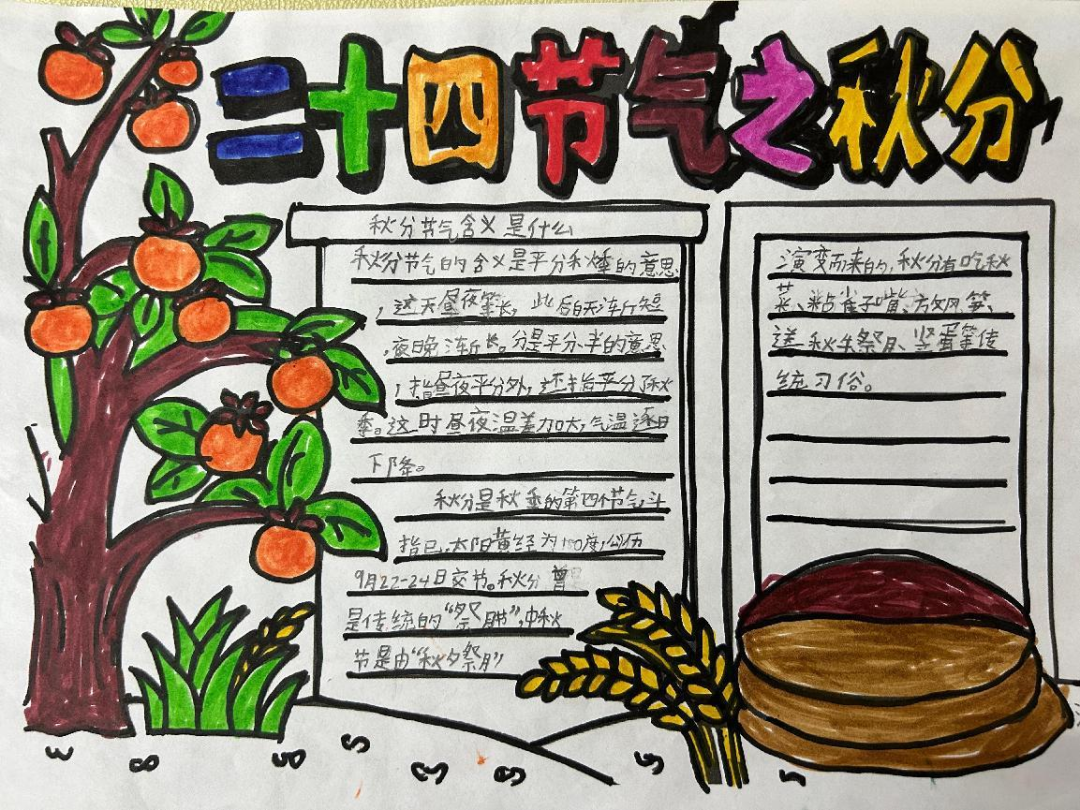 二十四节气之秋分
秋分节气含义是什么
秋分节气的含义是平分秋季的意思
,这天昼夜等长,此后白天渐短
,夜晚渐长。分是平分、半的意思
,指昼夜平分外,还指平分了秋
季。这时昼夜温差加大,气温逐日
下降。
秋分是秋季的第四个节气,斗
指已,太阳黄经为180度,公历
9月22-24日交节。秋分曾
是传统的“祭月节”,中秋
节是由“秋夕祭月”
演变而来的,秋分有吃秋
菜、粘雀子嘴、放风筝、
送秋牛祭月、竖蛋等传
统习俗。